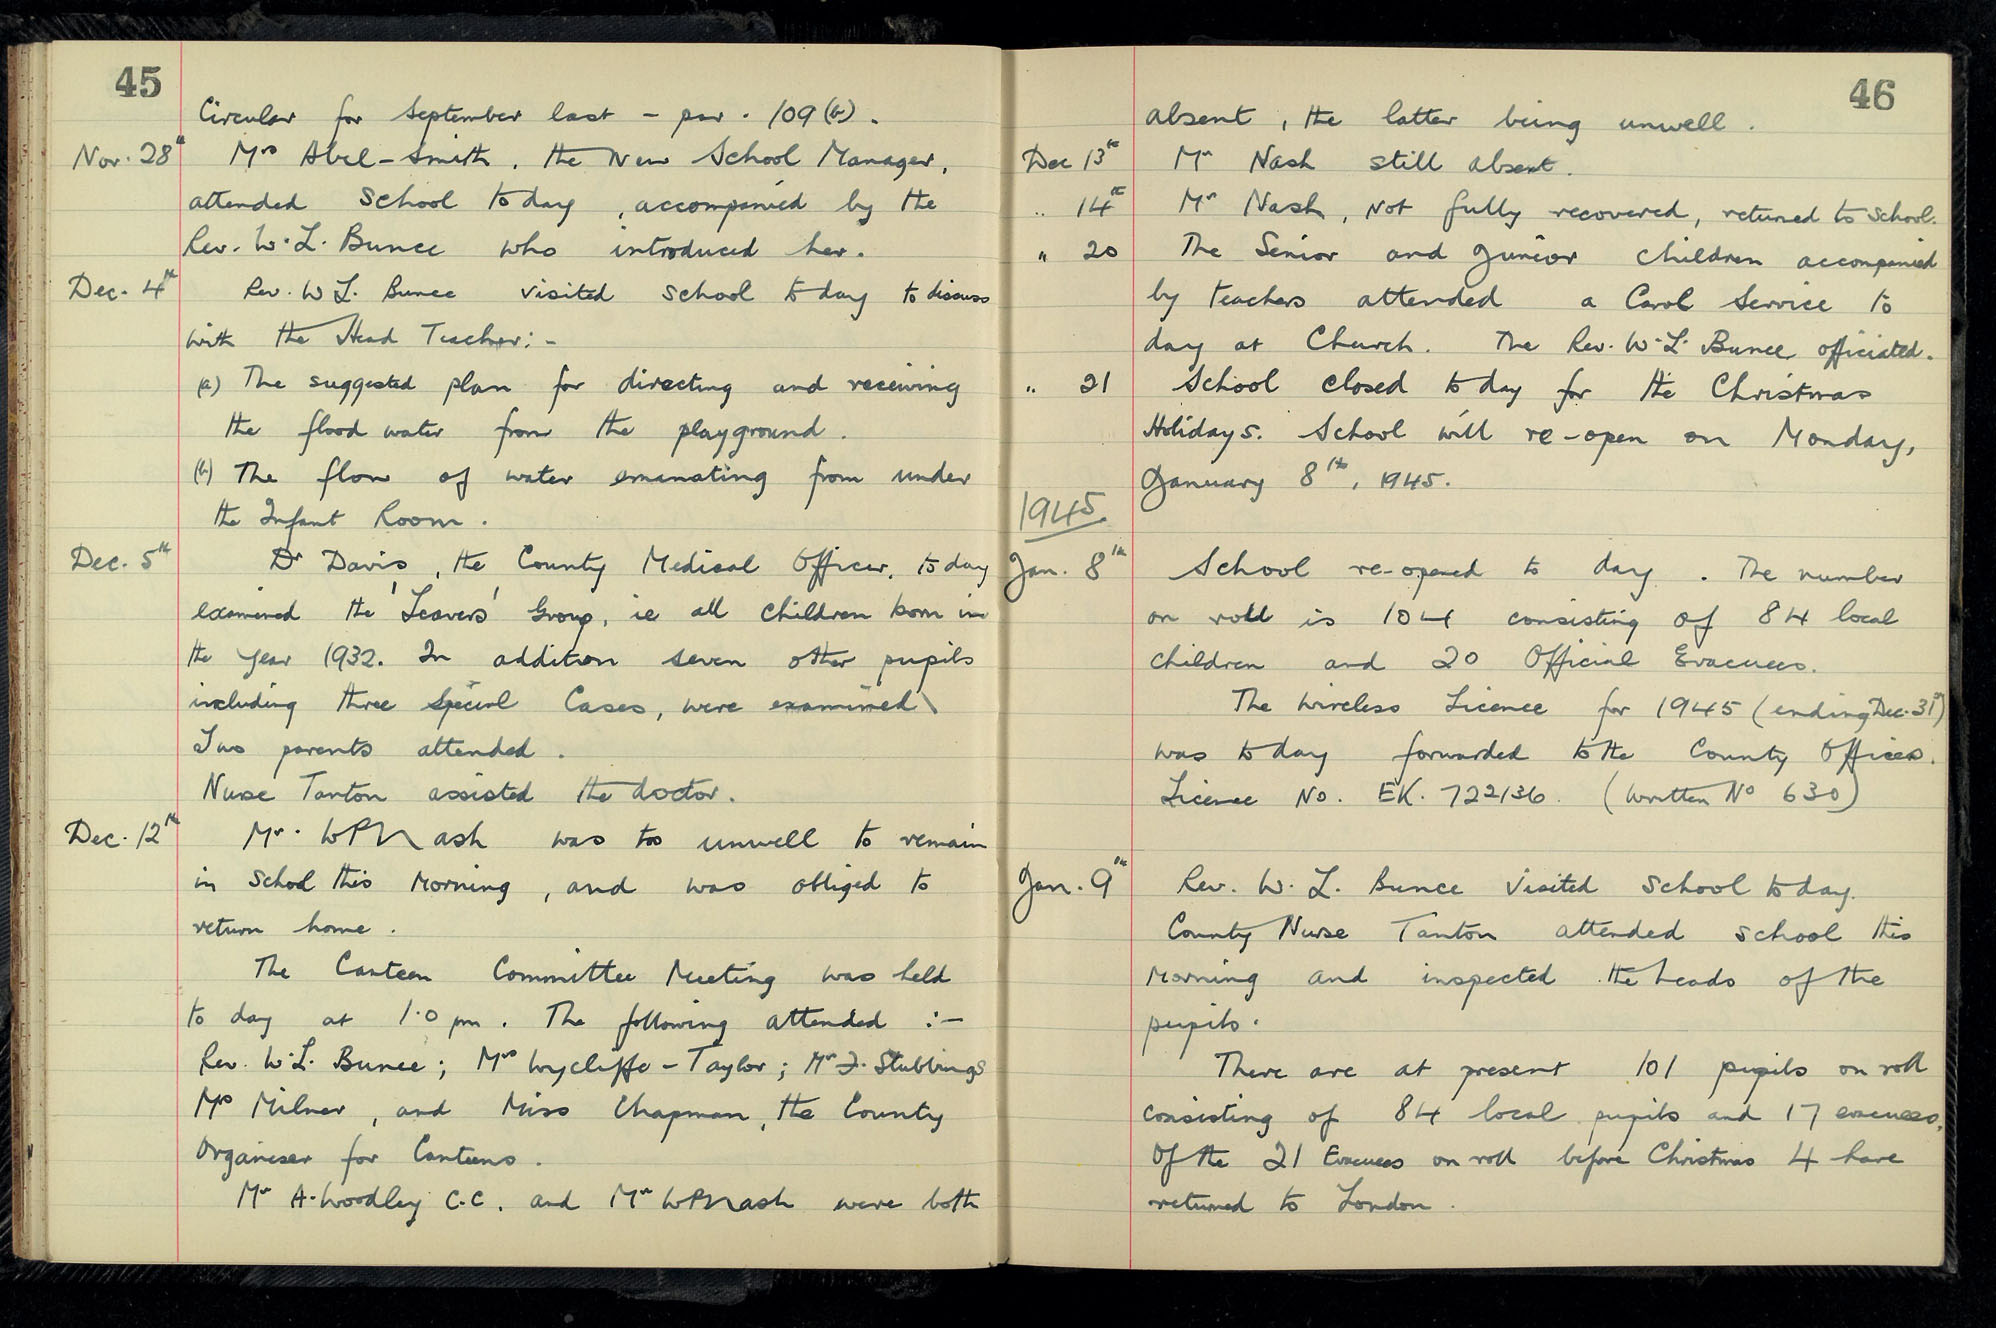 45
Circular for September last – par. 109 (b).
Nov. 28th Mrs Abel-Smith, the New School Manager,
attended School to day, accompanied by the
Rev. W. L. Bunce who introduced her.
Dec. 4th Rev. W L. Bunce visited school to day to discuss
with the Head Teacher:-
(a) The suggested plan for directing and receiving
the flood water from the playground.
(b) The flow of water emanating from under
the Infant Room.
Dec. 5th Dr Davis, the County Medical Officer, to day
examined the 'Leavers' Group, ie all children born in
the Year 1932. In addition seven other pupils
including three Special Cases, were examined
Two parents attended.
Nurse Tanton assisted the doctor.
Dec. 12th Mr. W P Nash was too unwell to remain
in school this morning, and was obliged to
return home.
The Canteen Committee Meeting was held
to day at 1.0 pm. The following attended :-
Rev. W. L. Bunce; Mrs Wycliffe-Taylor; Mr F. Stubbings
Mrs Milner, and Miss Chapman, the County
Organiser for Canteens.
Mr A. Woodley C.C. and Mr W P Nash were both
46
absent, the latter being unwell.
Dec 13th Mr Nash still absent.
" 14th Mr Nash, not fully recovered, returned to school.
" 20 The Senior and Junior children accompanied
by teachers attended a Carol Service to
day at Church. The Rev. W. L. Bunce officiated.
" 21 School closed to day for the Christmas
Holidays. School will re-open on Monday,
January 8th, 1945.
1945
Jan. 8th School re-opened to day. The number
on roll is 104 consisting of 84 local
children and 20 Official Evacuees.
The Wireless Licence for 1945 (ending Dec. 31st)
was to day forwarded to the County Offices.
Licence No. EK. 722136. (Written No 630)
Jan. 9th Rev. W. L. Bunce visited School to day.
County Nurse Tanton attended school this
morning and inspected the heads of the
pupils.
There are at present 101 pupils on roll
consisting of 84 local pupils and 17 evacuees.
Of the 21 Evacuees on roll before Christmas 4 have
returned to London.